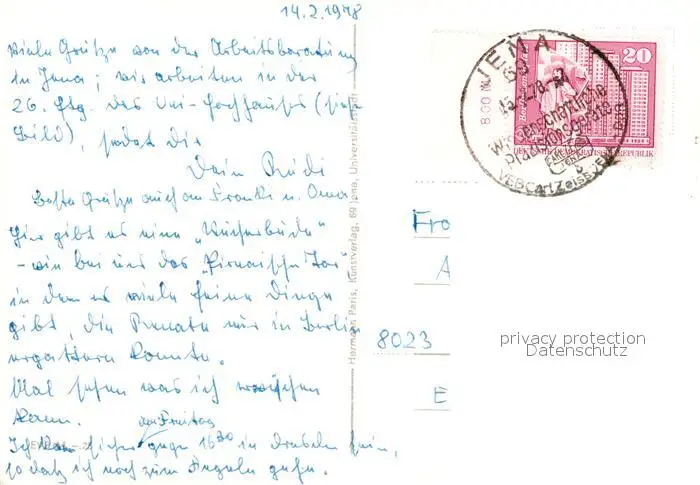 14.2.1978
Viele Grüße von der Arbeitsberatung
in Jena; wir arbeiten in der
26. Etg. des Uni-Hochhauses (siehe
Bild), sodaß die
Dein Rudi
Beste Grüße auch an Franke u. Oma
Hier gibt es eine „Kutscherbude"
- wie bei uns das „Pirnaische Tor"
in dem es viele feine Dinge
gibt, die Renate mir in Berlin
ergattern konnte.
Mal sehen was ich erwischen
kann.
am Freitag
Ich sicher gege 16³⁰ in Dresden sein,
so daß ich noch zum Angeln gehe.
Hermann Paris, Kunstverlag, 69 Jena, Universitätsstr.
JENA
69
15. 78-
8.00 M
Wissenschaftliche
Präzisionsgeräte
VEB Carl Zeiss JENA
20
DEUTSCHE DEMOKRATISCHE REPUBLIK
Fro
A
8023
E
privacy protection
Datenschutz